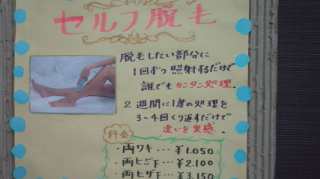 セルフ脱毛
脱毛したい部分に
1回ずつ照射するだけで
誰でもカンタン処理。
2週間に1度の処理を
3~4回くり返すだけで
違いを実感。
料金
・両ワキ…¥1.050
・両ヒジ下…¥2.100
・両ヒザ下…¥3.150